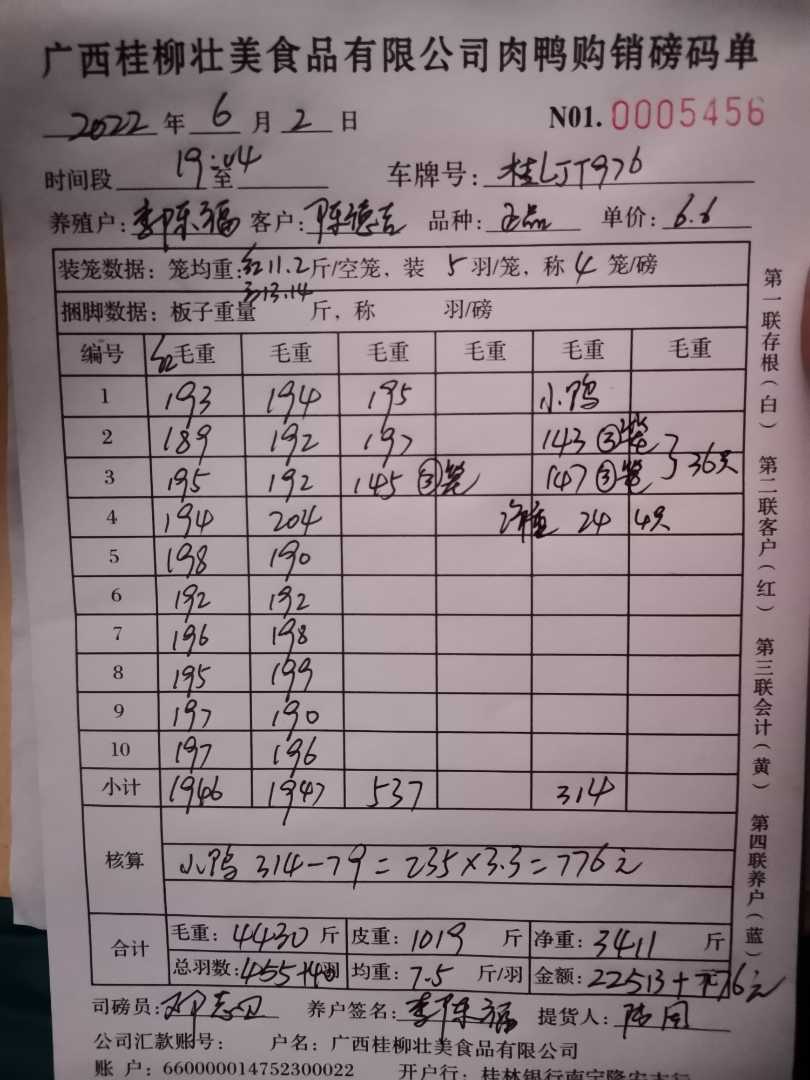 广西桂柳壮美食品有限公司肉鸭购销磅码单
2022 年 6 月 2 日 N01. 0005456
时间段 19:04 至 车牌号: 桂LJT976
养殖户: 李陈福 客户: 陈德吉 品种: 正品 单价: 6.6
装笼数据: 笼均重: 红11.2 斤/空笼, 装 5 羽/笼, 称 4 笼/磅
13.14
捆脚数据: 板子重量 斤, 称 羽/磅
编号 红毛重 毛重 毛重 毛重 毛重 毛重
1 193 194 195 小鸭
2 189 192 197 143 ③笼
3 195 192 145 ③笼 147 ③笼 36只
4 194 204 净重 24 4只
5 198 190
6 192 192
7 196 198
8 195 199
9 197 190
10 197 196
小计 1946 1947 537 314
核算 小鸭 314-79=235×3.3=776元
合计 毛重: 4430 斤 皮重: 1019 斤 净重: 3411 斤
总羽数: 455+40羽 均重: 7.5 斤/羽 金额: 22513+776元
司磅员: 养户签名: 李陈福 提货人:
公司汇款账号: 户名: 广西桂柳壮美食品有限公司
账 户: 660000014752300022 开户行: 桂林银行南宁隆安支行
第一联存根(白) 第二联客户(红) 第三联会计(黄) 第四联养户(蓝)